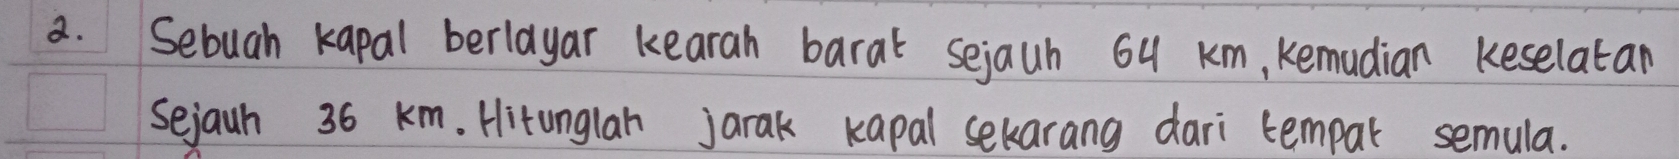 2. Sebuah kapal berlayar kearah barat sejauh 64 km, kemudian keselatan
sejauh 36 km. Hitunglah jarak kapal sekarang dari tempat semula.